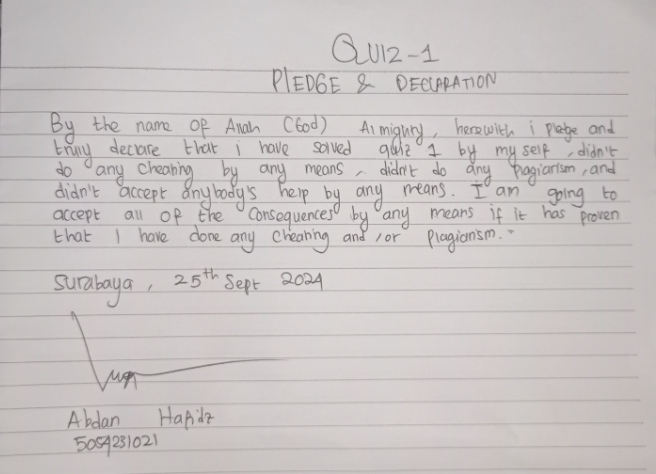 QUIZ-1
PLEDGE & DECLARATION
By the name of Allah (God) Almighty, herewith i pledge and
truly declare that i have solved quiz 1 by my self, didn't
do any cheating by any means, didn't do any plagiarism, and
didn't accept anybody's help by any means. I am going to
accept all of the consequences by any means if it has proven
that I have done any cheating and /or plagiarism."
Surabaya, 25th Sept 2024
Abdan Hafidz
5054231021